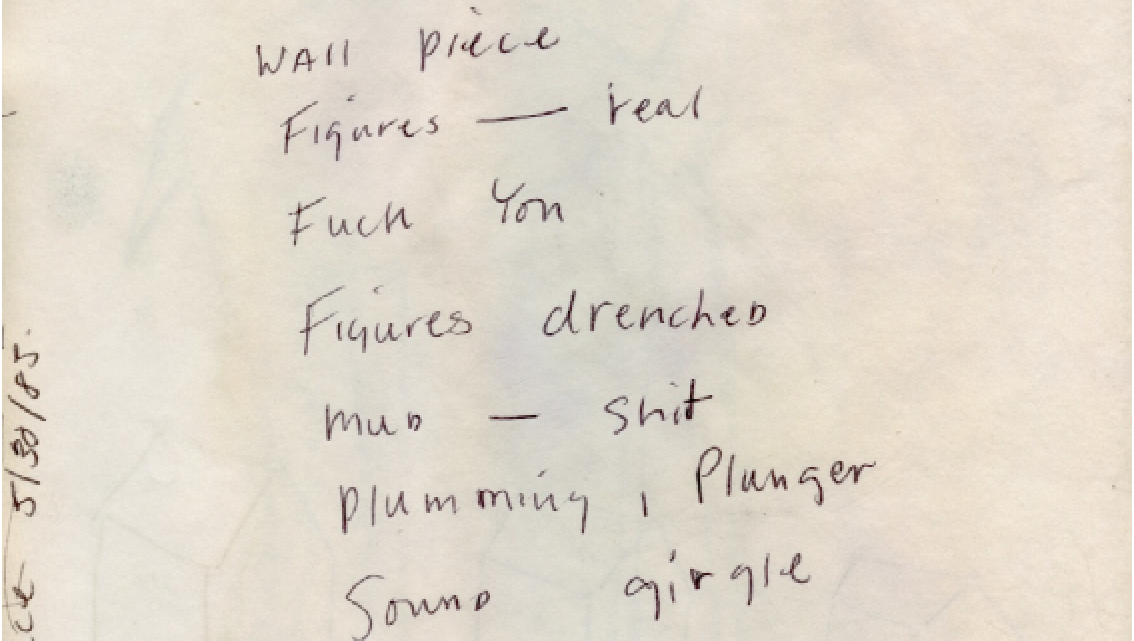 WAll piece
Figures — real
Fuck You
Figures drencheD
muD — shit
plumming, Plunger
SounD girgle
5/30/85